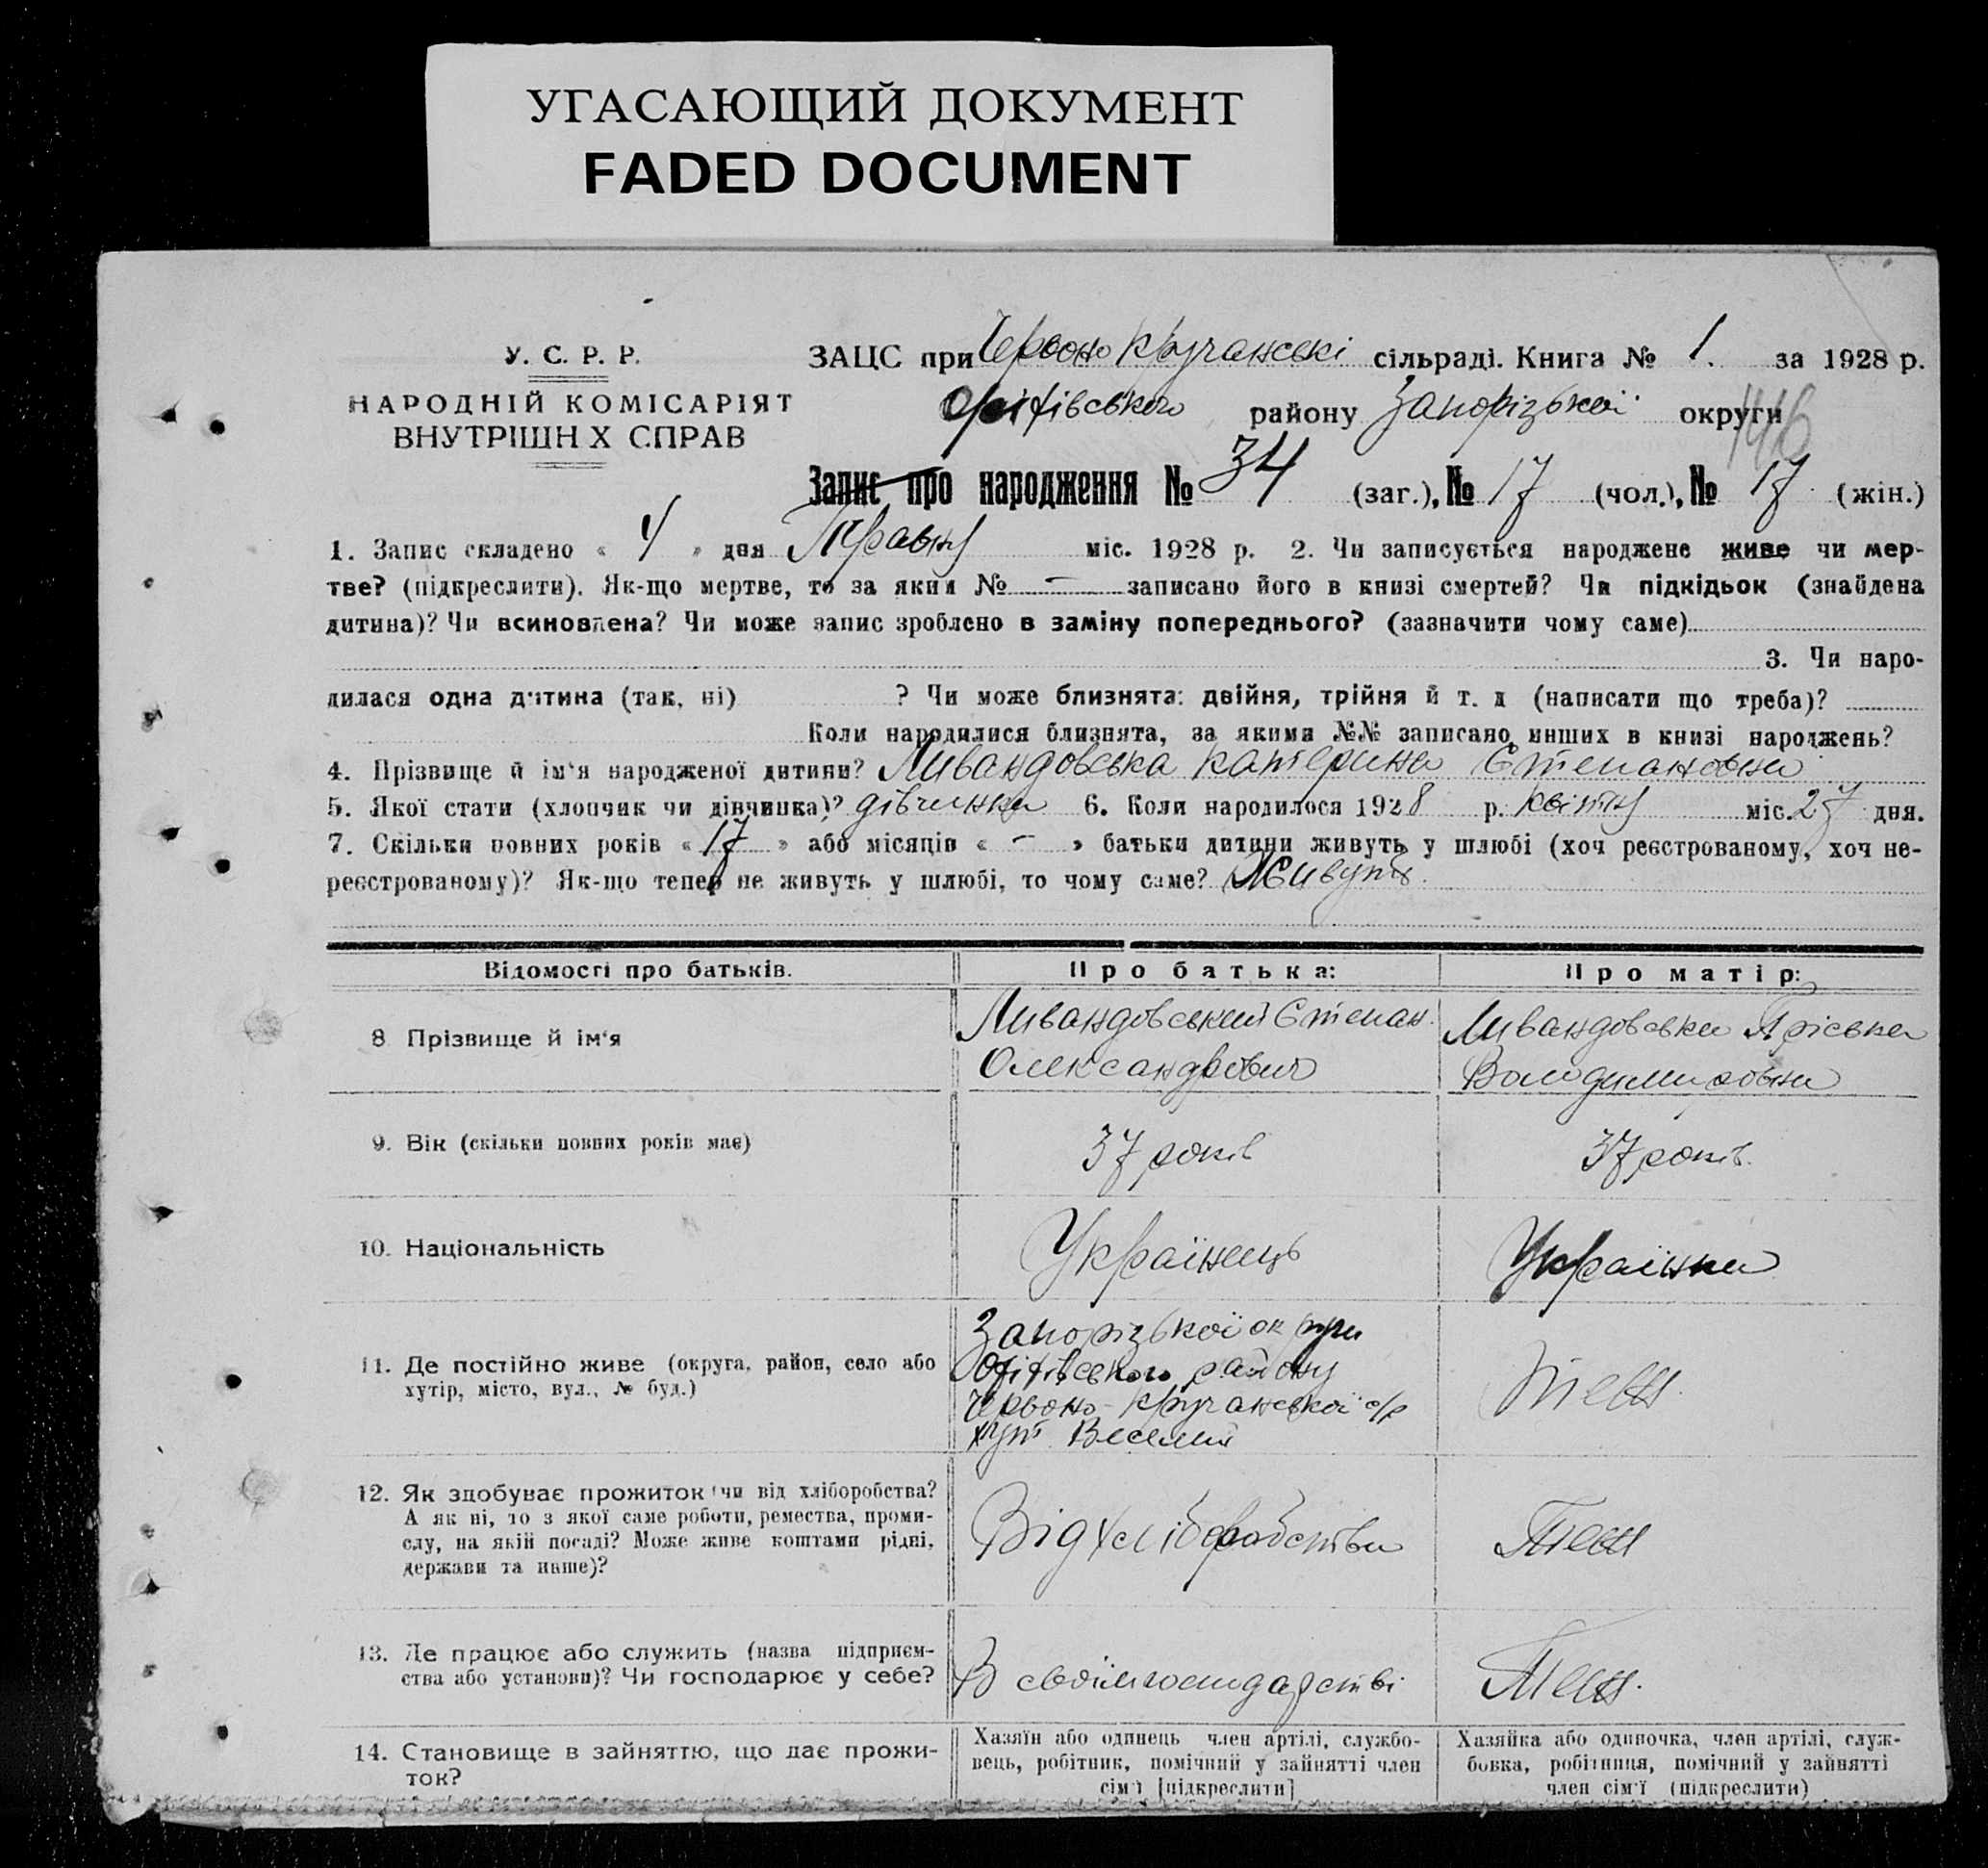 УГАСАЮЩИЙ ДОКУМЕНТ
FADED DOCUMENT
У. С. Р. Р.
НАРОДНІЙ КОМІСАРІЯТ
ВНУТРІШН Х СПРАВ
ЗАЦС при Червоно Кручанські сільраді. Книга № 1. за 1928 р.
Оріхівського району Запорізької округи
146
Запис про народження № 34 (заг.), № 17 (чол.), № 17 (жін.)
1. Запис складено « 4 » дня Травня міс. 1928 р. 2. Чи записується народжене живе чи мер-
тве? (підкреслити). Як-що мертве, то за яким № — записано його в книзі смертей? Чи підкідьок (знайдена
дитина)? Чи всиновлена? Чи може запис зроблено в заміну попереднього? (зазначити чому саме)
3. Чи наро-
дилася одна дитина (так, ні) ? Чи може близнята: двійня, трійня й т. д (написати що треба)?
Коли народилися близнята, за якими №№ записано инших в книзі народжень?
4. Прізвище й ім'я народженої дитини? Ливандовська Катерина Степановна
5. Якої стати (хлопчик чи дівчинка)? дівчинка 6. Коли народилося 1928 р. квітня міс. 27 дня.
7. Скільки повних років « 17 » або місяців « — » батьки дитини живуть у шлюбі (хоч реєстрованому, хоч не-
реєстрованому)? Як-що тепер не живуть у шлюбі, то чому саме? Живуть.
Відомості про батьків. Про батька: Про матір:
8 Прізвище й ім'я
Ливандовський Степан
Олександрович
Ливандовська
Володимировна
9. Вік (скільки повних років має) 37 років 37 років.
10. Національність Українець Українка
11. Де постійно живе (округа, район, село або
хутір, місто, вул., № буд.)
Запорізької округи
Оріхівського району
Червоно-Кручанської с/р
хут Веселий
теж.
12. Як здобуває прожиток чи від хліборобства?
А як ні, то з якої саме роботи, ремества, проми-
слу, на якій посаді? Може живе коштами рідні,
держави та инше)?
Від хліборобства
Теж
13. Де працює або служить (назва підприєм-
ства або установи)? Чи господарює у себе?
В своїм господарстві
Теж.
14. Становище в зайняттю, що дає прожи-
ток?
Хазяїн або одинець член артілі, службо-
вець, робітник, помічний у зайнятті член
сім'ї [підкреслити]
Хазяйка або одиночка, член артілі, служ-
бовка, робітниця, помічний у зайнятті
член сім'ї (підкреслити)